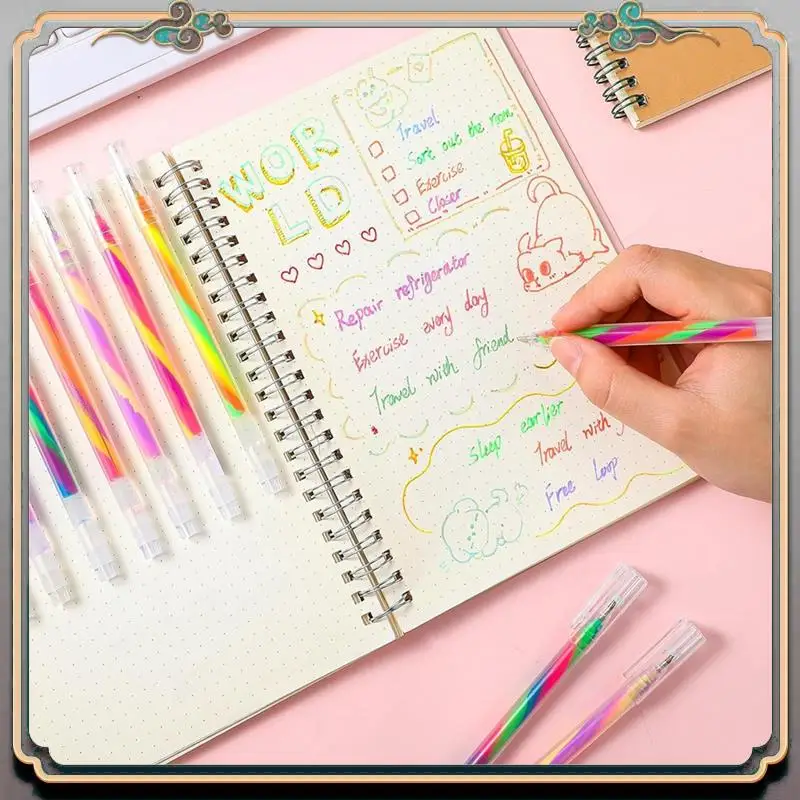 WOR
LD
Travel
Sort out the room
Exercise
Closer
Repair refrigerator
Exercise every day
Travel with friend
Sleep earlier
Travel with
Free Loop